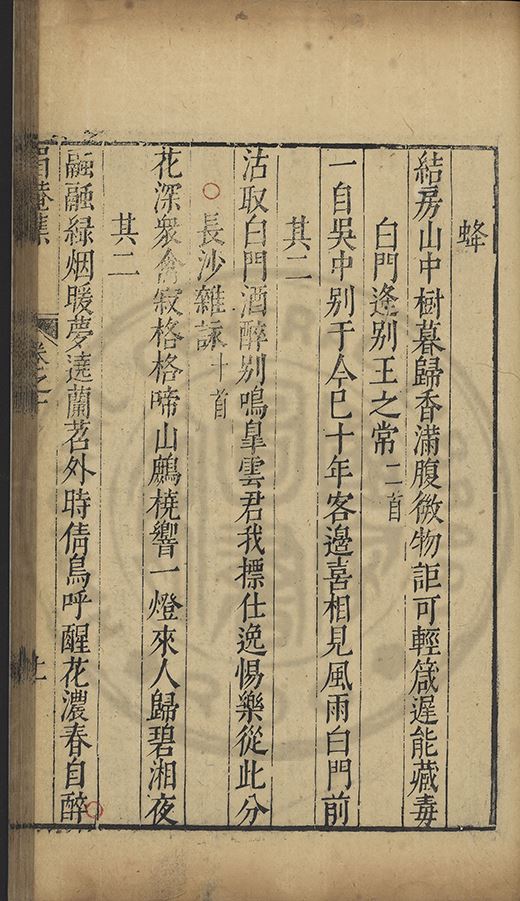 蜂
結房山中樹暮歸香滿腹微物詎可輕箴遲能藏毒
白門逢別王之常 二首
一自吳中别于今巳十年客邉喜相見風雨白門前
其二
沽取白門酒醉别鳴臯雲君我摽仕逸惕樂從此分
長沙雜詠 十首
花深衆
寂格格啼山鷓橈響一燈來人歸碧湘夜
其二
融融緑烟暖夢遶蘭茗外時倩鳥呼醒花濃春自醉